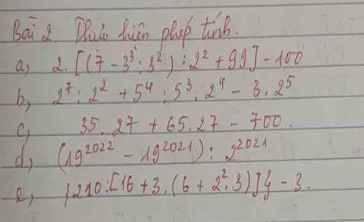 Bài 2 Thực hiện phép tính.
a, 2.[(7 - 3³:3²):2² + 99] - 100
b, 2⁷:2² + 5⁴:5³.2⁴ - 3.2⁵
c, 35.27 + 65.27 - 700.
d, (19²⁰²² - 19²⁰²¹):2²⁰²¹
e, {210:[16 + 3.(6 + 2².3)]} - 3.